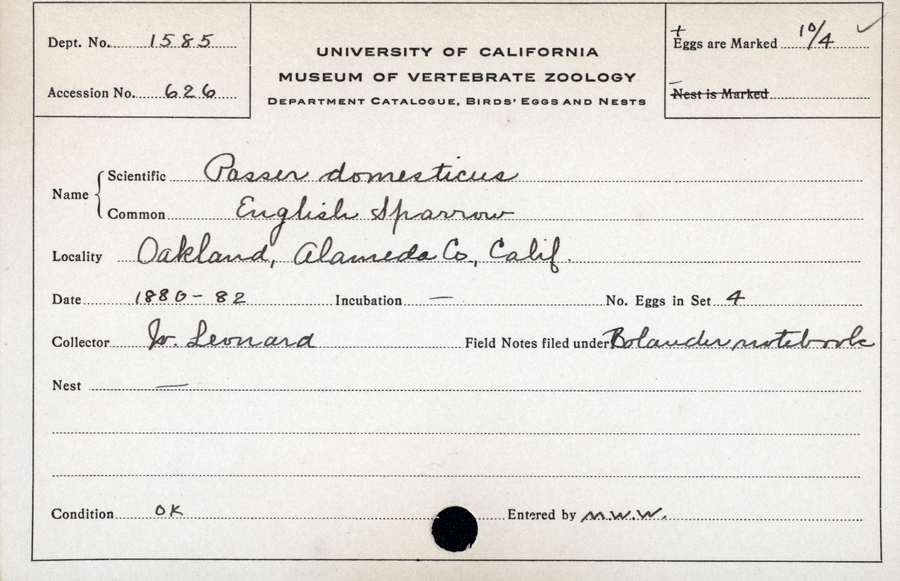 Dept. No. 1585
Accession No. 626
UNIVERSITY OF CALIFORNIA
MUSEUM OF VERTEBRATE ZOOLOGY
DEPARTMENT CATALOGUE, BIRDS' EGGS AND NESTS
Eggs are Marked 10/4 ✓
Nest is Marked
Name { Scientific Passer domesticus
Common English Sparrow
Locality Oakland, Alameda Co., Calif.
Date 1880-82 Incubation — No. Eggs in Set 4
Collector W. Leonard Field Notes filed under Bolander notebook
Nest —
Condition OK Entered by M.W.W.